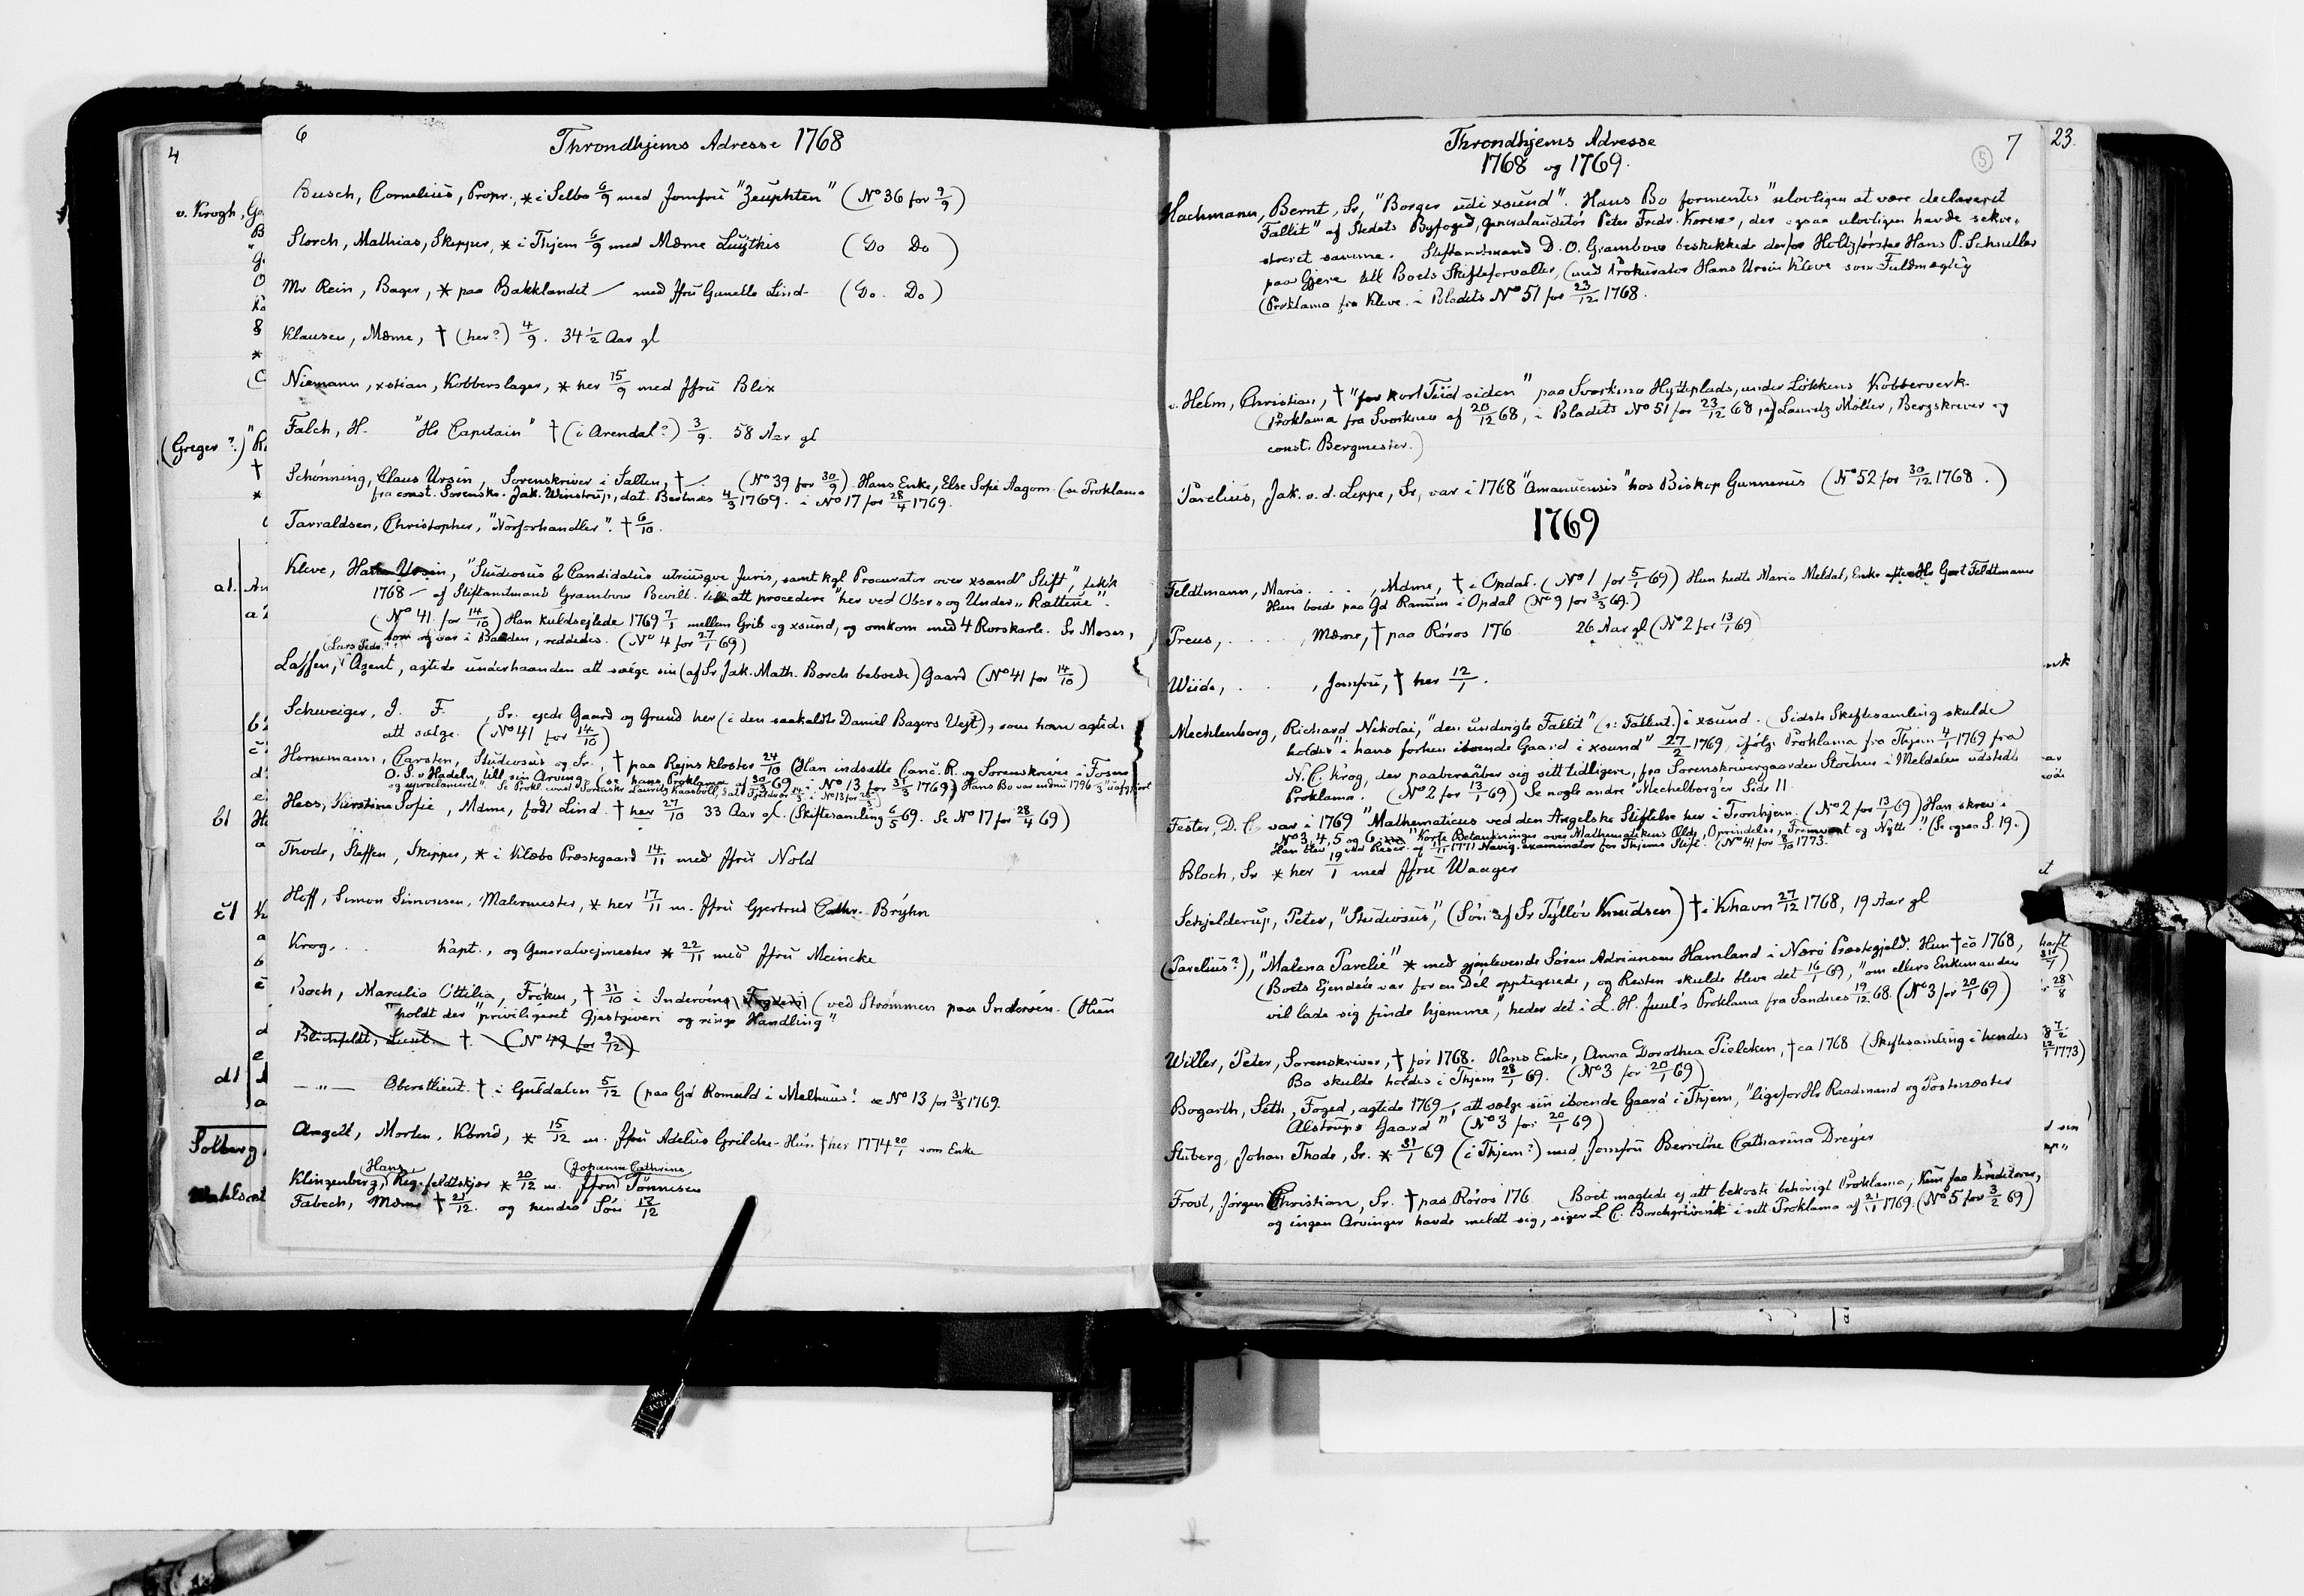 4
v. Krogh, Ga
(Greger?)
a1.
b1
c1
d1
Solberg
6
Throndhjems Adresse 1768
Busch, Cornelius, Propr., * i Selbo 6/9 med Jomfru "Zeuphten" (No 36 for 9/9)
Storch, Mathias, Skipper, * i Thjem 6/9 med Mdme Lüÿtkis (Do Do)
Mr Rein, Bager, * paa Bakklandet — med Jfru Gunelle Lind (Do. Do)
Klausen, Mdme, † (her?) 4/9. 34 1/2 Aar gl
Niemann, xstian, Kobberslager, * her 15/9 med Jfru Blix
Falch, H. "Hr Capitain" † (i Arendal?) 3/9. 58 Aar gl
Schønning, Claus Ursin, Sorenskriver i Salten, † —. (No 39 for 30/9). Hans Enke, Else Sofie Aagom. (se Proklama
fra const. Sorenskr. Jak. Winstrup, dat. Bodnæs 4/3 1769. i No 17 for 28/4 1769.
Tarraldsen, Christopher, "Nörforhandler". † 6/10.
Kleve, Hans Ursin, "Studiosus & Candidatus utriusqve Juris, samt kgl Procurator over xsand Stift", fekk
1768 — af Stiftamtmand Grambows Bevilt. till att procedere "her ved Ober- og Under-Rætterne".
(No 41. for 14/10) Han kuldsejlede 1769 7/1 mellem Grib og xsund, og omkom med 4 Rorskarle. Sr Moses,
som og var i Baaden, reddedes. (No 4 for 27/1 69)
(Lars Peds.?)
Lassen, Agent, agtede underhaanden att sælge sin (af Sr Jak. Math. Borch beboede) Gaard (No 41 for 14/10)
Schweiger, J. F. , Sr. ejede Gaard og Grund her (i den saakaldte Daniel Bagers Vejt), som han agtede
att sælge. (No 41 for 14/10)
Hornemann, Carsten, Studiosus og Sr., † paa Rejns kloster 24/10 (Han indsatte Canc. R. og Sorenskriver i Fosen
O. S. v Hadeln, till sin Arving, (se hans Proklama af 30/3 69 i No 13 for 31/3 1769) Hans Bo var endnu 1796 uafgjort
Hess, Kirstine Sofie, Mdme, født Lind. † her 27/10 33 Aar gl. (Skiftesamling 6/5 69. Se No 17 for 28/4 69)
Thode, Steffen, Skipper, * i Klæbo Præstegaard 14/11 med Jfru Nold
Hoff, Simon Simonsen, Malermester, * her 17/11 m. Jfru Gjertrud Cathr. Brÿhn
Krog, . . Kapt., og Generalvejmester * 22/11 med Jfru Meincke
Boch, Marsilia Ottilia, Frøken, † 31/10 i Inderøens Fogderi (ved Strømmen paa Inderøen. (Hun
"holdt der priviligeret Gjæstgiveri og ringe Handling"
Blichfeldt, Lieut. †. (No 49 for 9/12)
— " — Oberstlieut. † i Guldalen 5/12 (paa Gd Romuld i Melhuus? se No 13 for 31/3 1769.
Angell, Morten, Kbmd, * 15/12 m. Jfru Adelus Grilche. Hun † her 1774 20/1 som Enke
Hans Johanna Cathrine
Klingenberg, Reg. feldtskjær * 20/12 m. Jfru Tönnesen
Fabech, Mdme † 21/12. og hendes Sön 17/12
Throndhjems Adresse 7
1768 og 1769. 5
Hachmann, Bernt, Sr, "Borger udi xsund". Hans Bo formentes "ulovligen at være declareret
Fallit" af Stedets Byfoged, Generalauditör Peter Fredr. Koren, der ogsaa ulovligen havde sekve-
streret samme. Stiftamtmand D. O. Grambow beskikkede derfor Holtzförster Hans P. Schnitler
paa Gjere till Boets Skifteforvalter, (med Prokurator Hans Ursin Kleve som Fuldmægtig
(Proklama fra Kleve i Bladets No 51 for 23/12 1768.
v. Helm, Christian, † "for kort Tiid siden" paa Svorkmo Hytteplads, under Løkkens Kobberverk.
(Proklama fra Svorkmo af 20/12 68, i Bladets No 51 for 23/12 68, af Lauritz Möller, Bergskriver og
const. Bergmester.)
Parelius, Jak. v. d. Leppe, Sr, var i 1768 "Amanuensis" hos Biskop Gunnerus (No 52 for 30/12 1768.)
1769
Feldtmann, Maria . . . . , Mdme, † i Opdal. (No 1 for 5/1 69) Hun hedte Maria Meldal, Enke efter Hr Gert Feldtmann
Hun boede paa Gd Ranum i Opdal (No 9 for 3/3 69.)
Preus, . . . . , Mdme, † paa Röros 176 26 Aar gl (No 2 for 13/1 69)
Wiide, . . , Jomfru, † her 12/1.
Mechlenborg, Richard Nikolai, "den undvigte Fallit" (ɔ: Fallent.) i xsund. (Sidste Skiftesamling skulde
holdes "i hans forhen iboende Gaard i xsund" 27/2 1769, ifølge Proklama fra Thjem 4/1 1769 fra
N. C. Krog, der paaberaaber sig sitt tidligere, fra Sorenskrivergaarden Stochen i Meldalen udstedte
Proklama. (No 2 for 13/1 69) Se nogle andre "Mechelborger Side 11
Fester, D. C. var i 1769 "Mathematicus ved den Angelske Stiftelse her i Tronhjem. (No 2 for 13/1 69) Han skrev i
No 3, 4, 5 og 6 "Korte Betænkninger over Mathematikens Ælde, Oprindelse, Fremvext og Nytte". (Se ogsaa S. 19.)
Han blev ved Reser. af 14/11 1771 Navig. examinator for Thjems Stift. (No 41 for 8/10 1773.
Bloch, Sr * her 19/1 med Jfru Waager
Schjelderup, Peter, "Studiosus", (Sön af Sr Tÿllöv Knudsen) † i Khavn 27/12 1768, 19 Aar gl
(Parelius?), "Malena Parelie" * med gjenlevende Sören Adriansen Hamland i Nærö Præstegjeld. Hun † ca 1768,
(Boets Ejendele var for en Del opptegnede, og Resten skulde bleve det 16/1 69, "om ellers Enkemanden
vil lade sig finde hjemme", heder det i L. H. Juul's Proklama fra Sandnes 19/12 68. (No 3 for 20/1 69)
Willer, Peter, Sorenskriver, † før 1768. Hans Enke, Anna Dorothea Pielcken, † ca 1768 (Skiftesamling i hendes
Bo skulde holdes i Thjem 28/1 69. (No 3 for 20/1 69)
Bogarth, Seth, Foged, agtede 1769 —, att sælge sin iboende Gaard i Thjem, "ligefor Hr Raadmand og Postmester
Alstrups Gaard" (No 3 for 20/1 69)
Stuberg, Johan Thode, Sr. * 31/1 69 (i Thjem?) med Jomfru Berrethe Catharina Dreÿer
Frost, Jørgen Christian, Sr. † paa Röros 176 . (Boet magtede ej att bekoste behørigt Proklama, kun faa kreditorer,
og ingen Arvinger havde meldt sig, siger L. C. Borchgrevink i sitt Proklama af 21/1 1769. (No 5 for 3/2 69)
23.